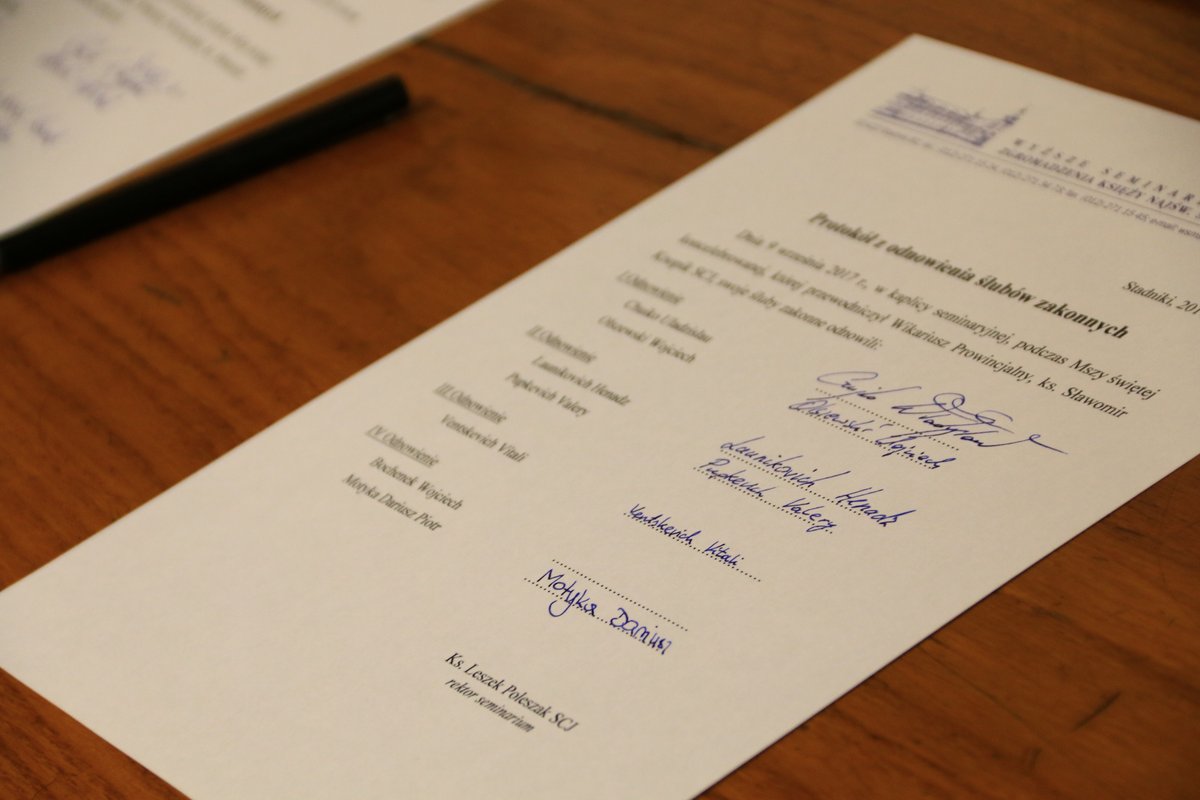 WYŻSZE SEMINAR
ZGROMADZENIA KSIĘŻY NAJŚW.
Stadniki, 201
Protokół z odnowienia ślubów zakonnych
Dnia 9 września 2017 r., w kaplicy seminaryjnej, podczas Mszy świętej
koncelebrowanej, której przewodniczył Wikariusz Prowincjalny, ks. Sławomir
Knopik SCJ, swoje śluby zakonne odnowili:
I Odnowienie
Olszewski Wojciech
Olszewski Wojciech
II Odnowienie
Launikovich Henadz
Launikovich Henadz
Papkevich Valery
Valery
III Odnowienie
Ventskevich Vitali
Ventskevich Vitali
IV Odnowienie
Bochenek Wojciech
Motyka Dariusz Piotr
Motyka Dariusz
Ks. Leszek Poleszak SCJ
rektor seminarium